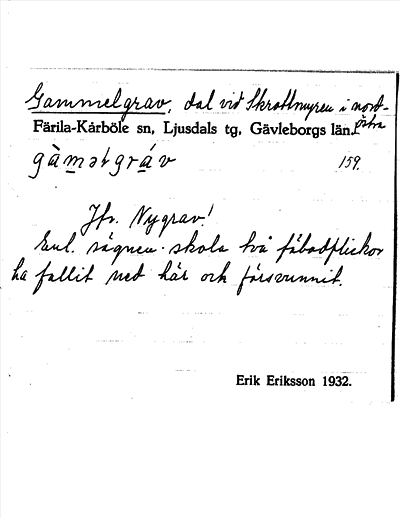 Gammelgrav, dal vid Skrattmyren i nord-
östra
Färila-Kårböle sn, Ljusdals tg, Gävleborgs län.
gàməlgráv 159.
Jfr. Nygrav!
Enl. sägnen skola två fäbodflickor
ha fallit ned här och försvunnit.
Erik Eriksson 1932.